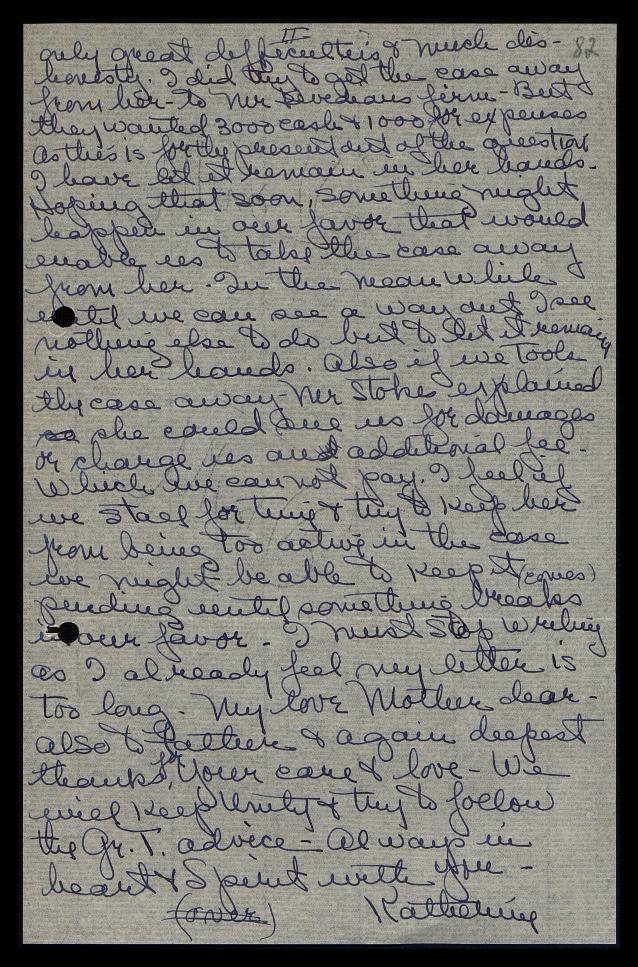 II
82
only great difficulties & much dis-
honesty. I did try to get the case away
from her - to Mr firm - But
they wanted 3000 cash & 1000 for expenses
As this is for the present out of the question
I have let it remain in her hands -
Hoping that soon, something might
happen in our favor that would
enable us to take the case away
from her. In the meanwhile
until we can see a way out I see
nothing else to do but to let it remain
in her hands. Also if we took
the case away - Mr Stokes explained
she could sue us for damages
or charge us an additional fee -
Which we cannot pay. I feel if
we stall for time & try to keep her
from being too active in the case
we might be able to keep it
pending until something breaks
in our favor - I must stop writing
as I already feel my letter is
too long - My love Mother dear -
also to Father & again deepest
thanks for your care & love - We
will keep Unity & try to follow
the Gr. T. advice - Always in
heart & Spirit with you -
(over) Katherine